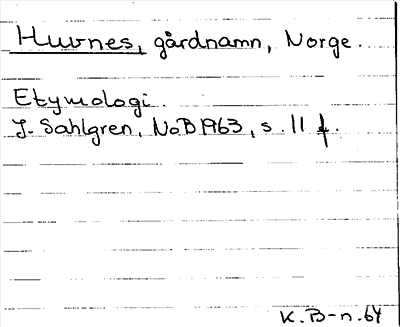 Huvnes, gårdnamn, Norge.
Etymologi.
J. Sahlgren, NoB 1963, s. 11 f.
K. B-n. 64